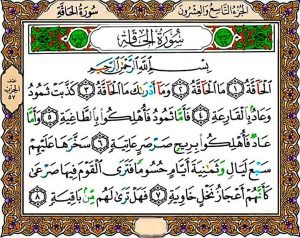 الجزء التاسع والعشرون
سورة الحاقة
سُورَةُ الحَاقَّةِ
بِسْمِ اللَّهِ الرَّحْمَٰنِ الرَّحِيمِ
الْحَاقَّةُ ١ مَا الْحَاقَّةُ ٢ وَمَا أَدْرَاكَ مَا الْحَاقَّةُ ٣ كَذَّبَتْ ثَمُودُ
وَعَادٌ بِالْقَارِعَةِ ٤ فَأَمَّا ثَمُودُ فَأُهْلِكُوا بِالطَّاغِيَةِ ٥ وَأَمَّا
عَادٌ فَأُهْلِكُوا بِرِيحٍ صَرْصَرٍ عَاتِيَةٍ ٦ سَخَّرَهَا عَلَيْهِمْ
سَبْعَ لَيَالٍ وَثَمَٰنِيَةَ أَيَّامٍ حُسُومًا فَتَرَى الْقَوْمَ فِيهَا صَرْعَىٰ
كَأَنَّهُمْ أَعْجَازُ نَخْلٍ خَاوِيَةٍ ٧ فَهَلْ تَرَىٰ لَهُم مِّنۢ بَاقِيَةٍ ٨